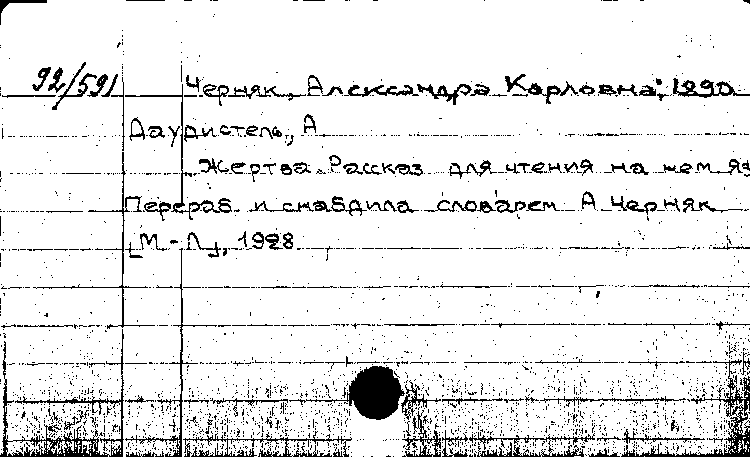 92/591 Черняк, Александра Карловна, 1890
Даудистель, А.
Жертва. Рассказ для чтения на нем яз
Перераб. и снабдила словарем А. Черняк
[М.-Л.], 1928